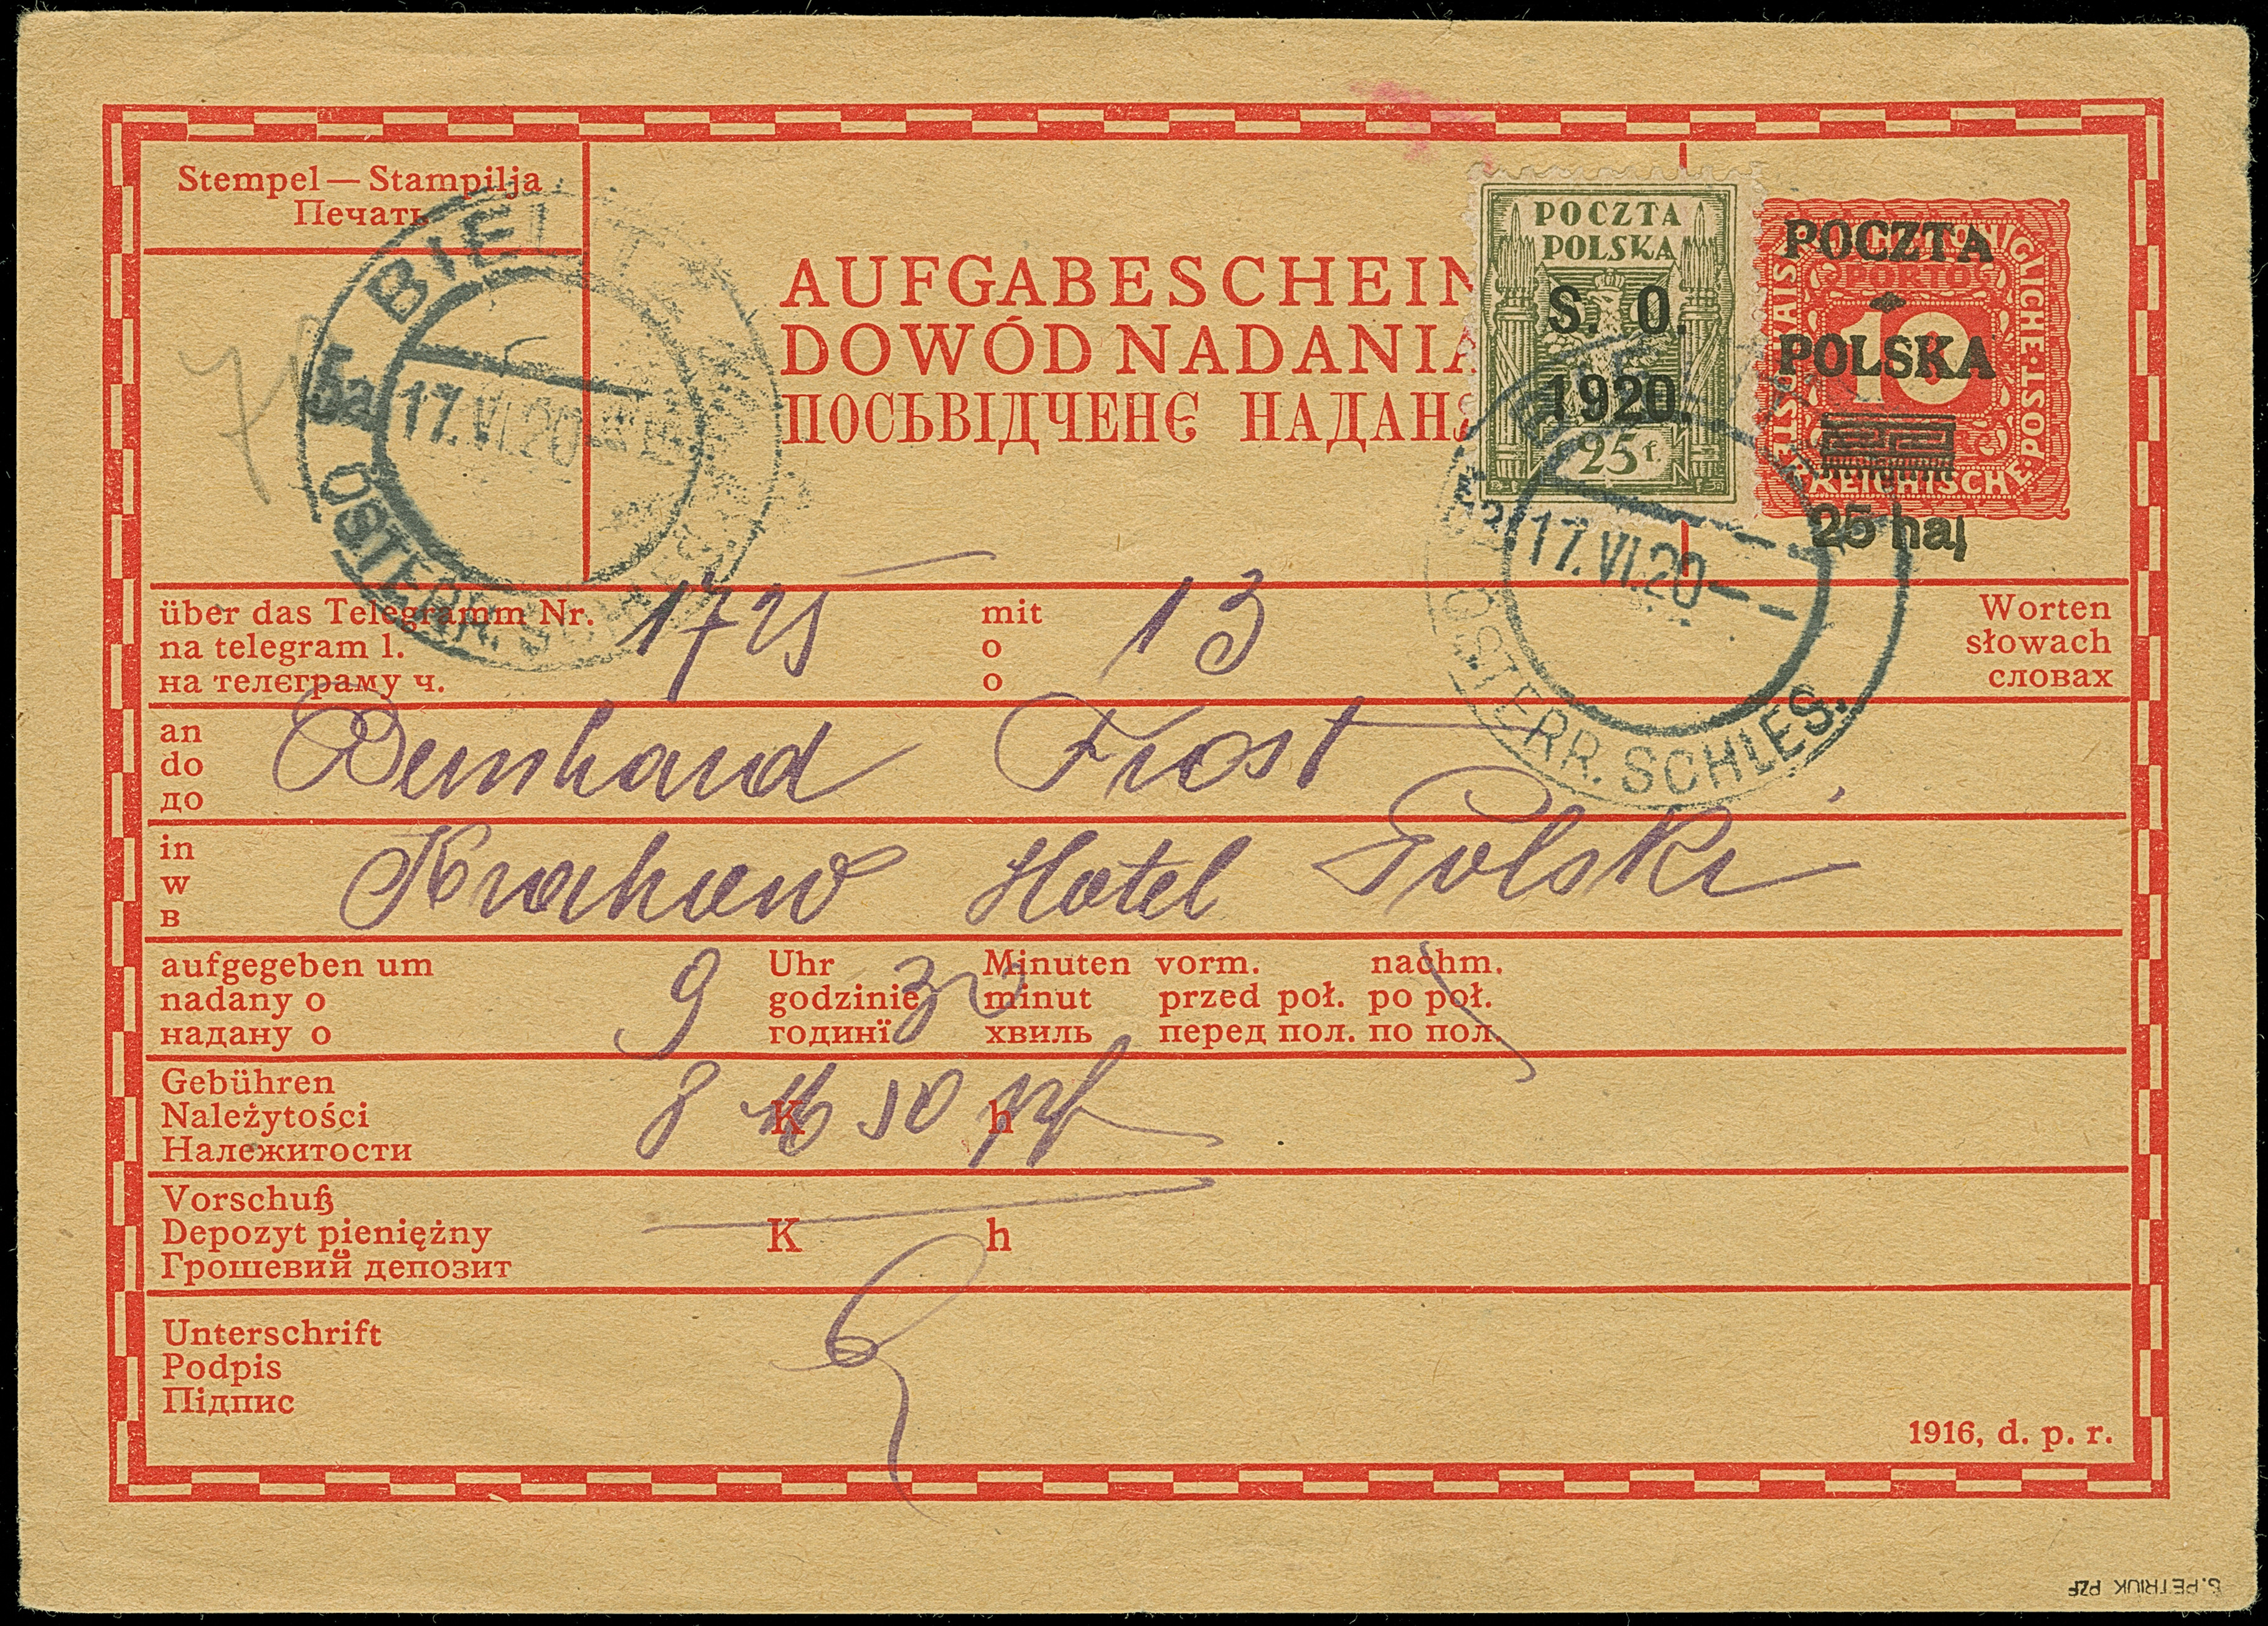 Stempel — Stampilja
Печать
BIELITZ
5a
17.VI.20
ÖSTERR. SCHLES.
AUFGABESCHEIN
DOWÓD NADANIA
ПОСЬВІДЧЕНЄ НАДАНЯ
POCZTA
POLSKA
S. O.
1920.
25 f.
POCZTA
PORTO
10
POLSKA
25 hal
KAISERLICHE KÖNIGLICHE ÖSTERREICHISCHE POST
BIELITZ
5a
17.VI.20
ÖSTERR. SCHLES.
über das Telegramm Nr. 1725 mit 13 Worten
na telegram l. o słowach
на телєграму ч. о словах
an Bernhard Frost
do
до
in Krakau Hotel Polski
w
в
aufgegeben um 9 Uhr 30 Minuten vorm. nachm.
nadany o godzinie minut przed poł. po poł.
надану о годинї хвиль перед пол. по пол.
Gebühren
Należytości 8 M K 50 h pf
Належитости
Vorschuß
Depozyt pieniężny K h
Грошевий депозит
Unterschrift
Podpis
Підпис
1916, d. p. r.
S. PETRIUK PZF